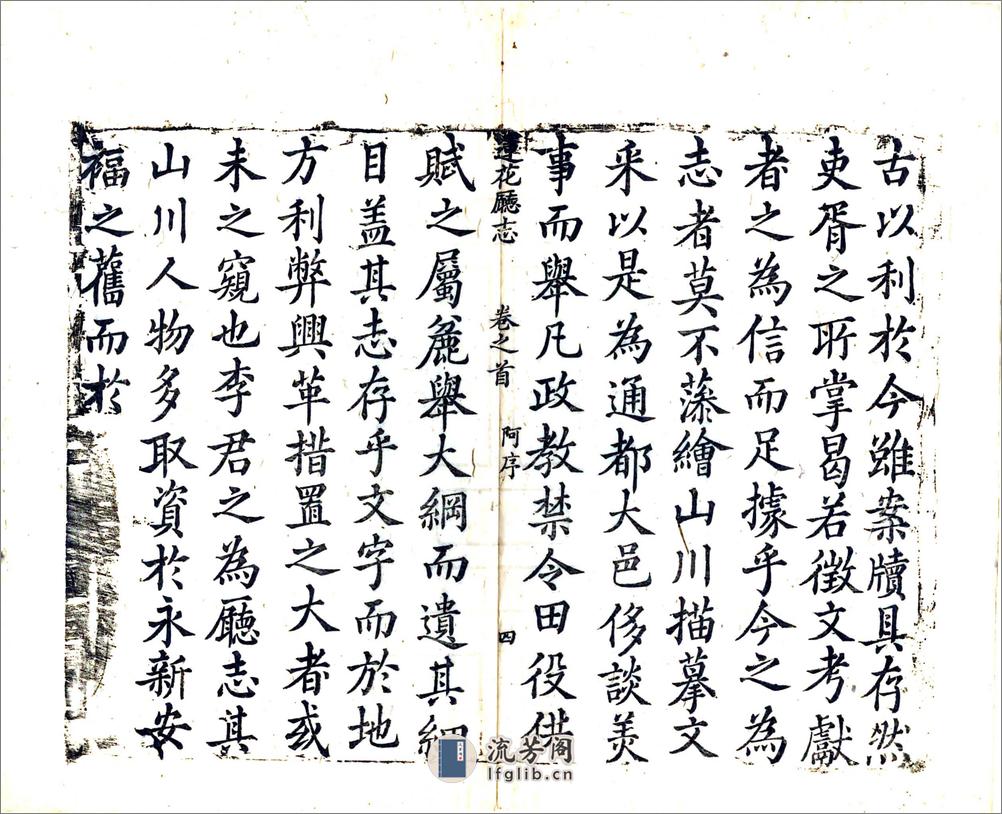 古以利於今雖案牘具存然
吏胥之所掌曷若徵文考獻
者之為信而足據乎今之為
志者莫不藻繪山川描摹文
采以是為通都大邑侈談美
事而舉凡政教禁令田役供
蓮花廳志
卷之首
阿序
四
賦之屬麄舉大綱而遺其細
目盖其志存乎文字而於地
方利弊興革措置之大者或
未之窺也李君之為廳志其
山川人物多取資於永新安
福之舊而於
流芳阁
lfglib.cn